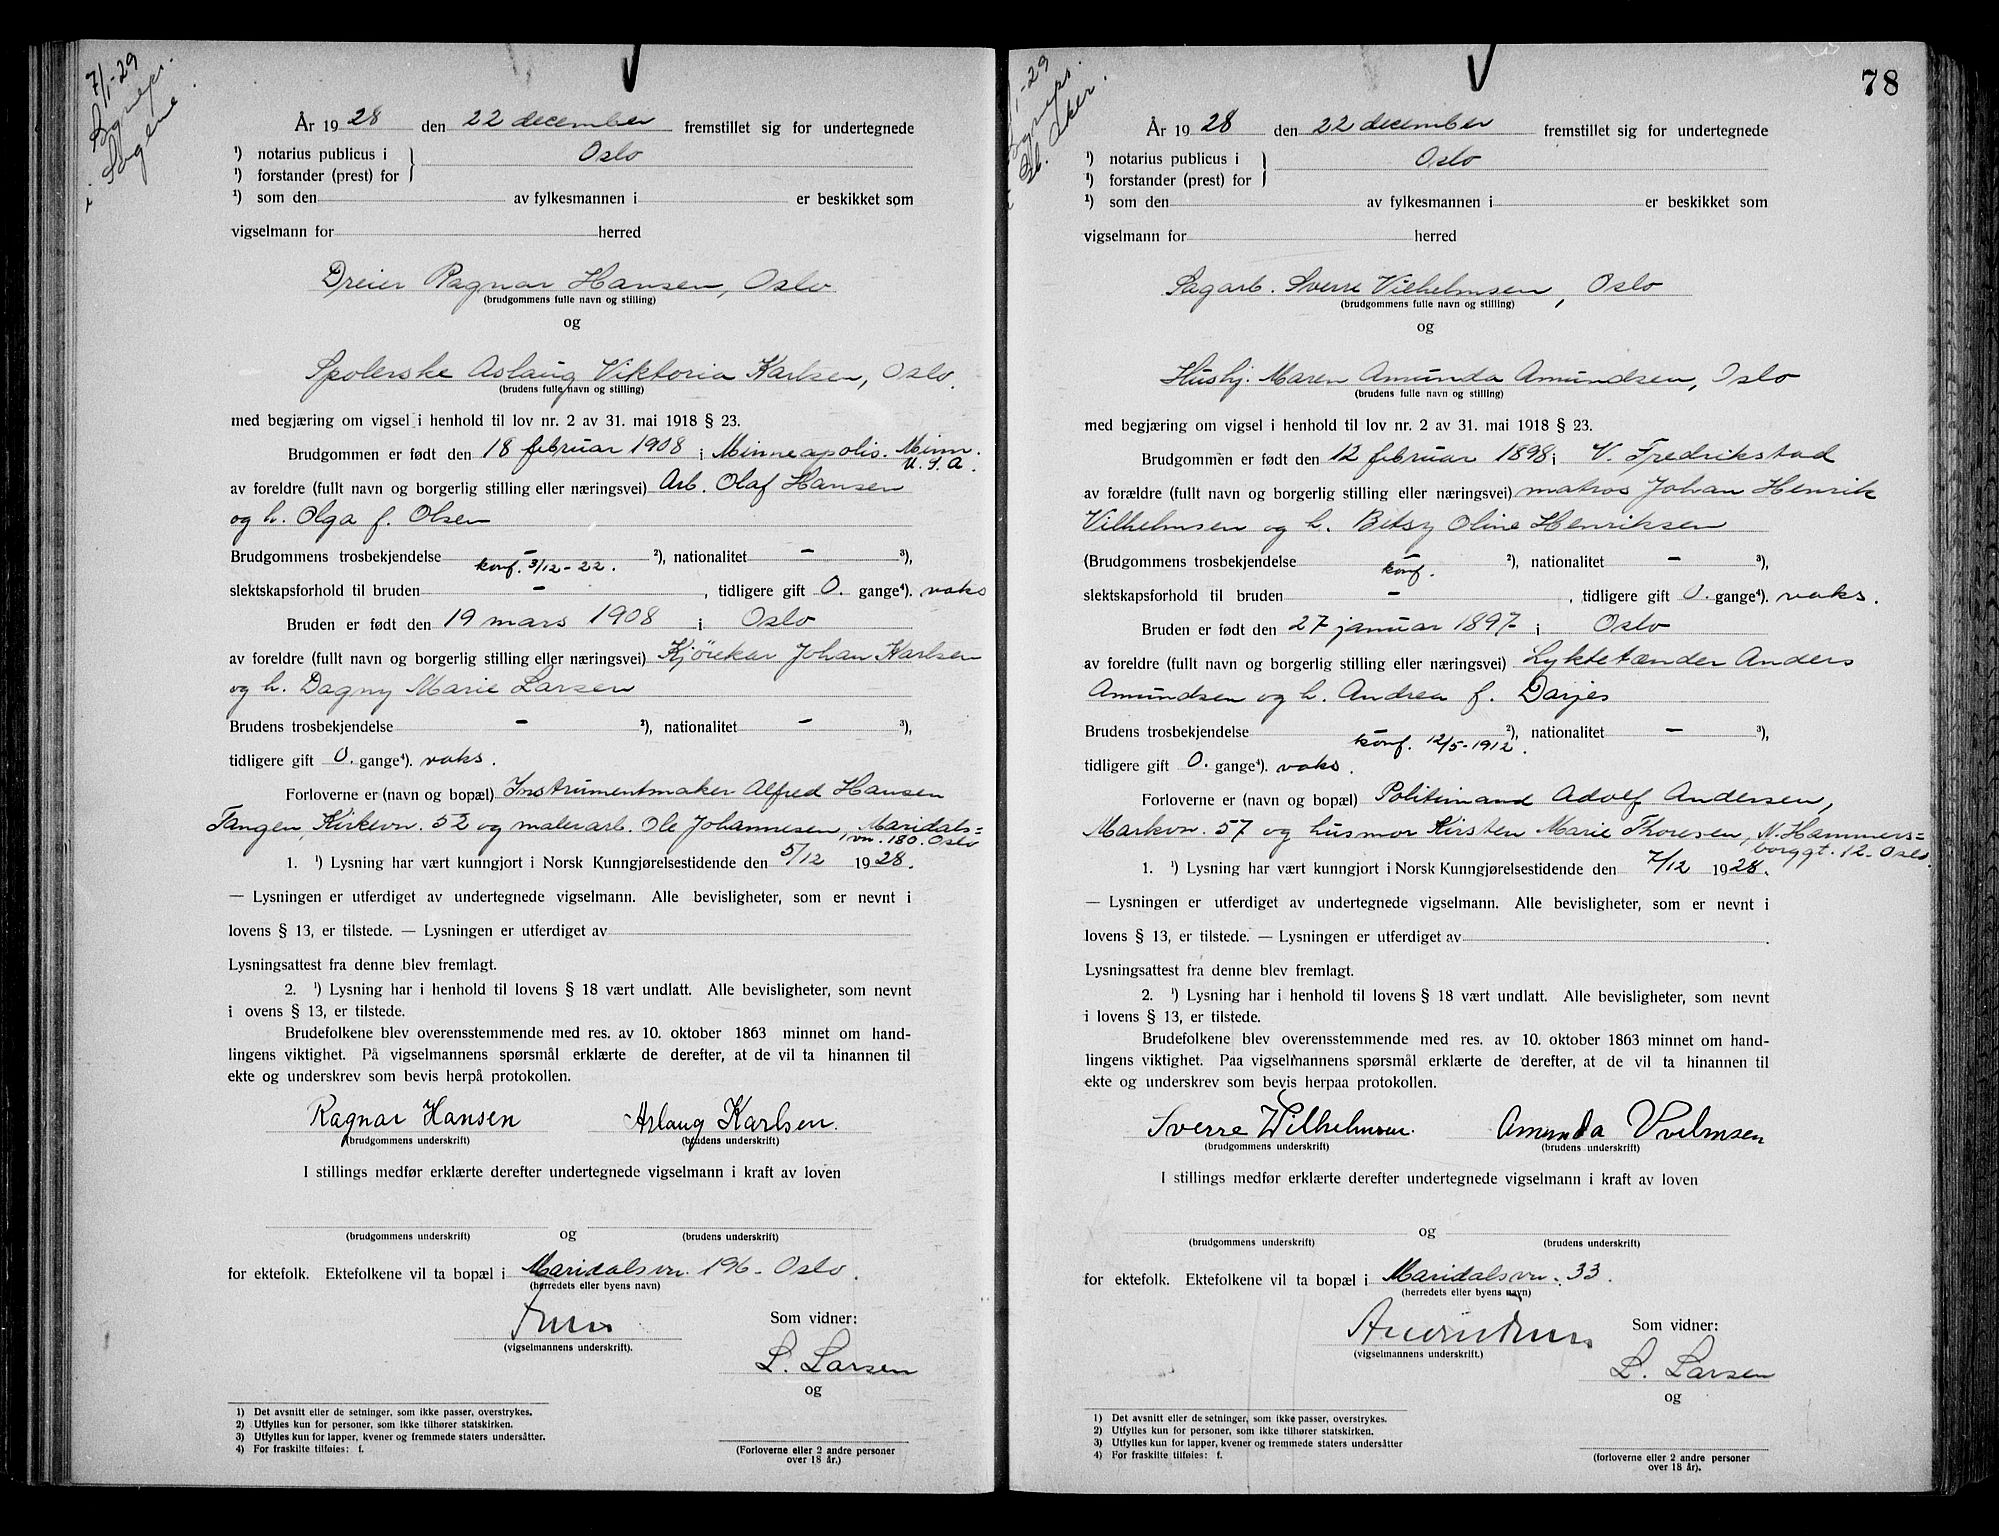 7/1-29
Sogneps.
i Sagene
År 1928 den 22 december fremstillet sig for undertegnede
¹) notarius publicus i
¹) forstander (prest) for
Oslo
¹) som den av fylkesmannen i er beskikket som
vigselmann for herred
Dreier Ragnar Hansen, Oslo
(brudgommens fulle navn og stilling)
og
Spolerske Aslaug Viktoria Karlsen, Oslo.
(brudens fulle navn og stilling)
med begjæring om vigsel i henhold til lov nr. 2 av 31. mai 1918 § 23.
Brudgommen er født den 18 februar 1908 i Minneapolis. Minn.
U.S.A.
av foreldre (fullt navn og borgerlig stilling eller næringsvei) Arb. Olaf Hansen
og h. Olga f. Olsen
Brudgommens trosbekjendelse - ²), nationalitet - ³),
konf. 3/12-22.
slektskapsforhold til bruden - , tidligere gift 0. gange⁴). vaks
Bruden er født den 19 mars 1908 i Oslo
av foreldre (fullt navn og borgerlig stilling eller næringsvei) Kjörekar Johan Karlsen
og h. Dagny Marie Larsen
Brudens trosbekjendelse - ²), nationalitet - ³),
tidligere gift 0. gange⁴). vaks.
Forloverne er (navn og bopæl) Instrumentmaker Alfred Hansen
Tangen, Kirkevn. 52 og malerarb. Ole Johannesen, Maridals=
vn. 180. Oslo
1. ¹) Lysning har vært kunngjort i Norsk Kunngjørelsestidende den 5/12 1928.
— Lysningen er utferdiget av undertegnede vigselmann. Alle bevisligheter, som er nevnt i
lovens § 13, er tilstede. — Lysningen er utferdiget av
Lysningsattest fra denne blev fremlagt.
2. ¹) Lysning har i henhold til lovens § 18 vært undlatt. Alle bevisligheter, som nevnt
i ovens § 13, er tilstede.
Brudefolkene blev overensstemmende med res. av 10. oktober 1863 minnet om hand-
lingens viktighet. På vigselmannens spørsmål erklærte de derefter, at de vil ta hinannen til
ekte og underskrev som bevis herpå protokollen.
Ragnar Hansen Aslaug Karlsen.
(brudgommens underskrift) (brudens underskrift)
I stillings medfør erklærte derefter undertegnede vigselmann i kraft av loven
og
(brudgommens underskrift) (brudens underskrift)
for ektefolk. Ektefolkene vil ta bopæl i Maridalsvn. 196- Oslo.
(herredets eller byens navn)
(vigselmannens underskrift).
Som vidner:
L. Larsen
og
(Forloverne eller 2 andre personer
over 18 år.)
1) Det avsnitt eller de setninger, som ikke passer, overstrykes.
2) Utfylles kun for personer, som ikke tilhører statskirken.
3) Utfylles kun for lapper, kvener og fremmede staters undersåtter.
4) For fraskilte tilføies: f.
78
1-29
Sogneps.
Aker.
År 1928 den 22 december fremstillet sig for undertegnede
¹) notarius publicus i
¹) forstander (prest) for
Oslo
¹) som den av fylkesmannen i er beskikket som
vigselmann for herred
Sagarb. Sverre Vilhelmsen, Oslo
(brudgommens fulle navn og stilling)
og
Hushj. Maren Amunda Amundsen, Oslo
(brudens fulle navn og stilling)
med begjæring om vigsel i henhold til lov nr. 2 av 31. mai 1918 § 23.
Brudgommen er født den 12 februar 1898 i V. Fredrikstad
av forældre (fullt navn og borgerlig stilling eller næringsvei) matros Johan Henrik
Vilhelmsen og h. Betsy Oline Henriksen
(Brudgommens trosbekjendelse - ²), nationalitet - ³),
konf.
slektskapsforhold til bruden - , tidligere gift 0. gange⁴). vaks.
Bruden er født den 27 januar 1897- i Oslo
av foreldre (fullt navn og borgerlig stilling eller næringsvei) Lyktetænder Anders
Amundsen og h. Andrea f. Darjes
Brudens trosbekjendelse - ²), nationalitet - ³),
konf. 12/5-1912.
tidligere gift 0. gange⁴). vaks.
Forloverne er (navn og bopæl) Politimand Adolf Andersen,
Markvn. 57 og husmor Kirsten Marie Thoresen, N. Hammers=
borggt. 12. Oslo.
1. ¹) Lysning har vært kunngjort i Norsk Kunngjørelsestidende den 7/12 1928.
— Lysningen er utferdiget av undertegnede vigselmann. Alle bevisligheter, som er nevnt i
lovens § 13, er tilstede. — Lysningen er utferdiget av .
Lysningsattest fra denne blev fremlagt.
2. ¹) Lysning har i henhold til lovens § 18 vært undlatt. Alle bevisligheter, som nevnt
i lovens § 13, er tilstede.
Brudefolkene blev overensstemmende med res. av 10. oktober 1863 minnet om hand-
lingens viktighet. Paa vigselmannens spørsmål erklærte de derefter, at de vil ta hinannen til
ekte og underskrev som bevis herpaa protokollen.
Sverre Wilhelmsen. Amunda Vvilmsen
(brudgommens underskrift) (brudens underskrift)
I stillings medfør erklærte derefter undertegnede vigselmann i kraft av loven
og
(brudgommens underskrift) (brudens underskrift)
for ektefolk. Ektefolkene vil ta bopæl i Maridalsvn. 33.
(herredets eller byens navn)
(vigselmannens underskrift.)
Som vidner:
L. Larsen
og
(forloverne eller 2 andre personer
over 18 år).
1) Det avsnitt eller de setninger, som ikke passer, overstrykes.
2) Utfylles kun for personer, som ikke tilhører statskirken.
3) Utfylles kun for lapper, kvener og fremmede staters undersåtter
4) For fraskilte tilføies: f.